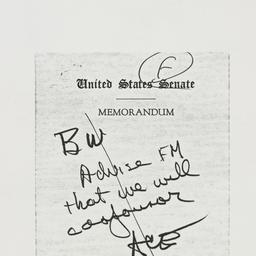 F
United States Senate
MEMORANDUM
BW
Advise FM
that we will
cosponsor